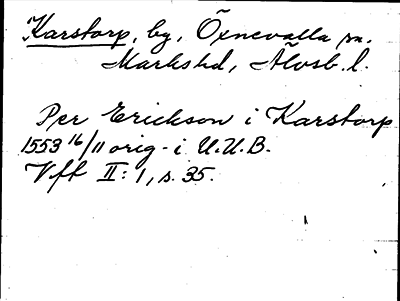 Karstorp, by, Öxnevalla sn.
Markshd, Älvsb. l.
Per Erickson i Karstorp
1553 16/11 orig. i U.U.B.
Vft II: 1, s. 35.